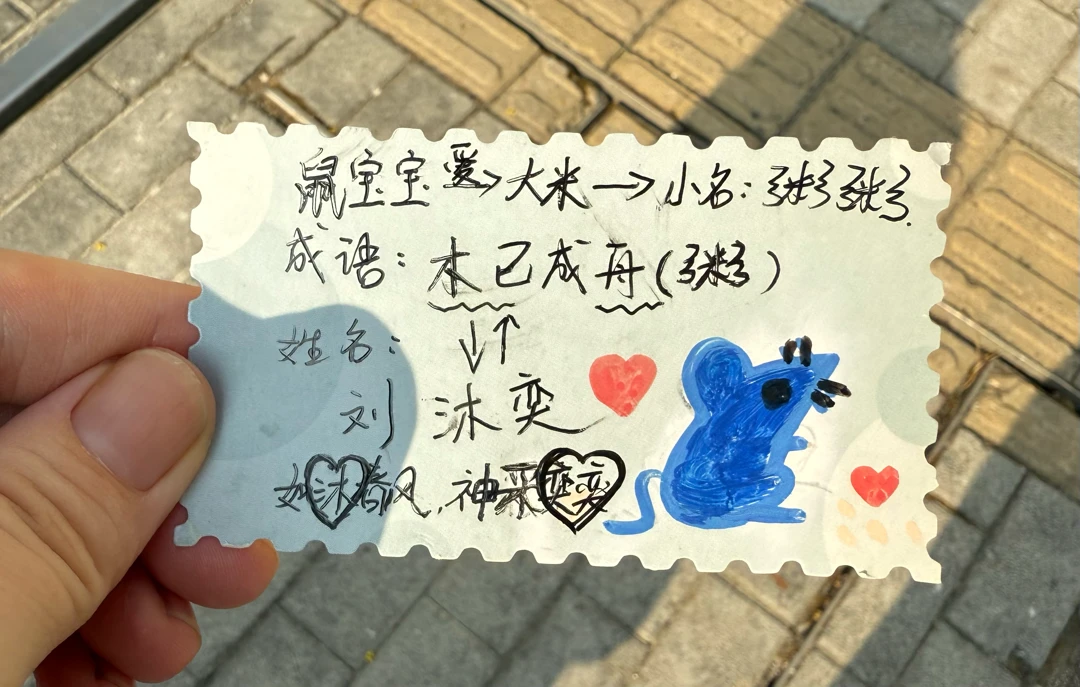 鼠宝宝爱→大米→小名:粥粥.
成语:木已成舟(粥)
姓名:↓↑
刘沐奕
如沐春风,神采奕奕